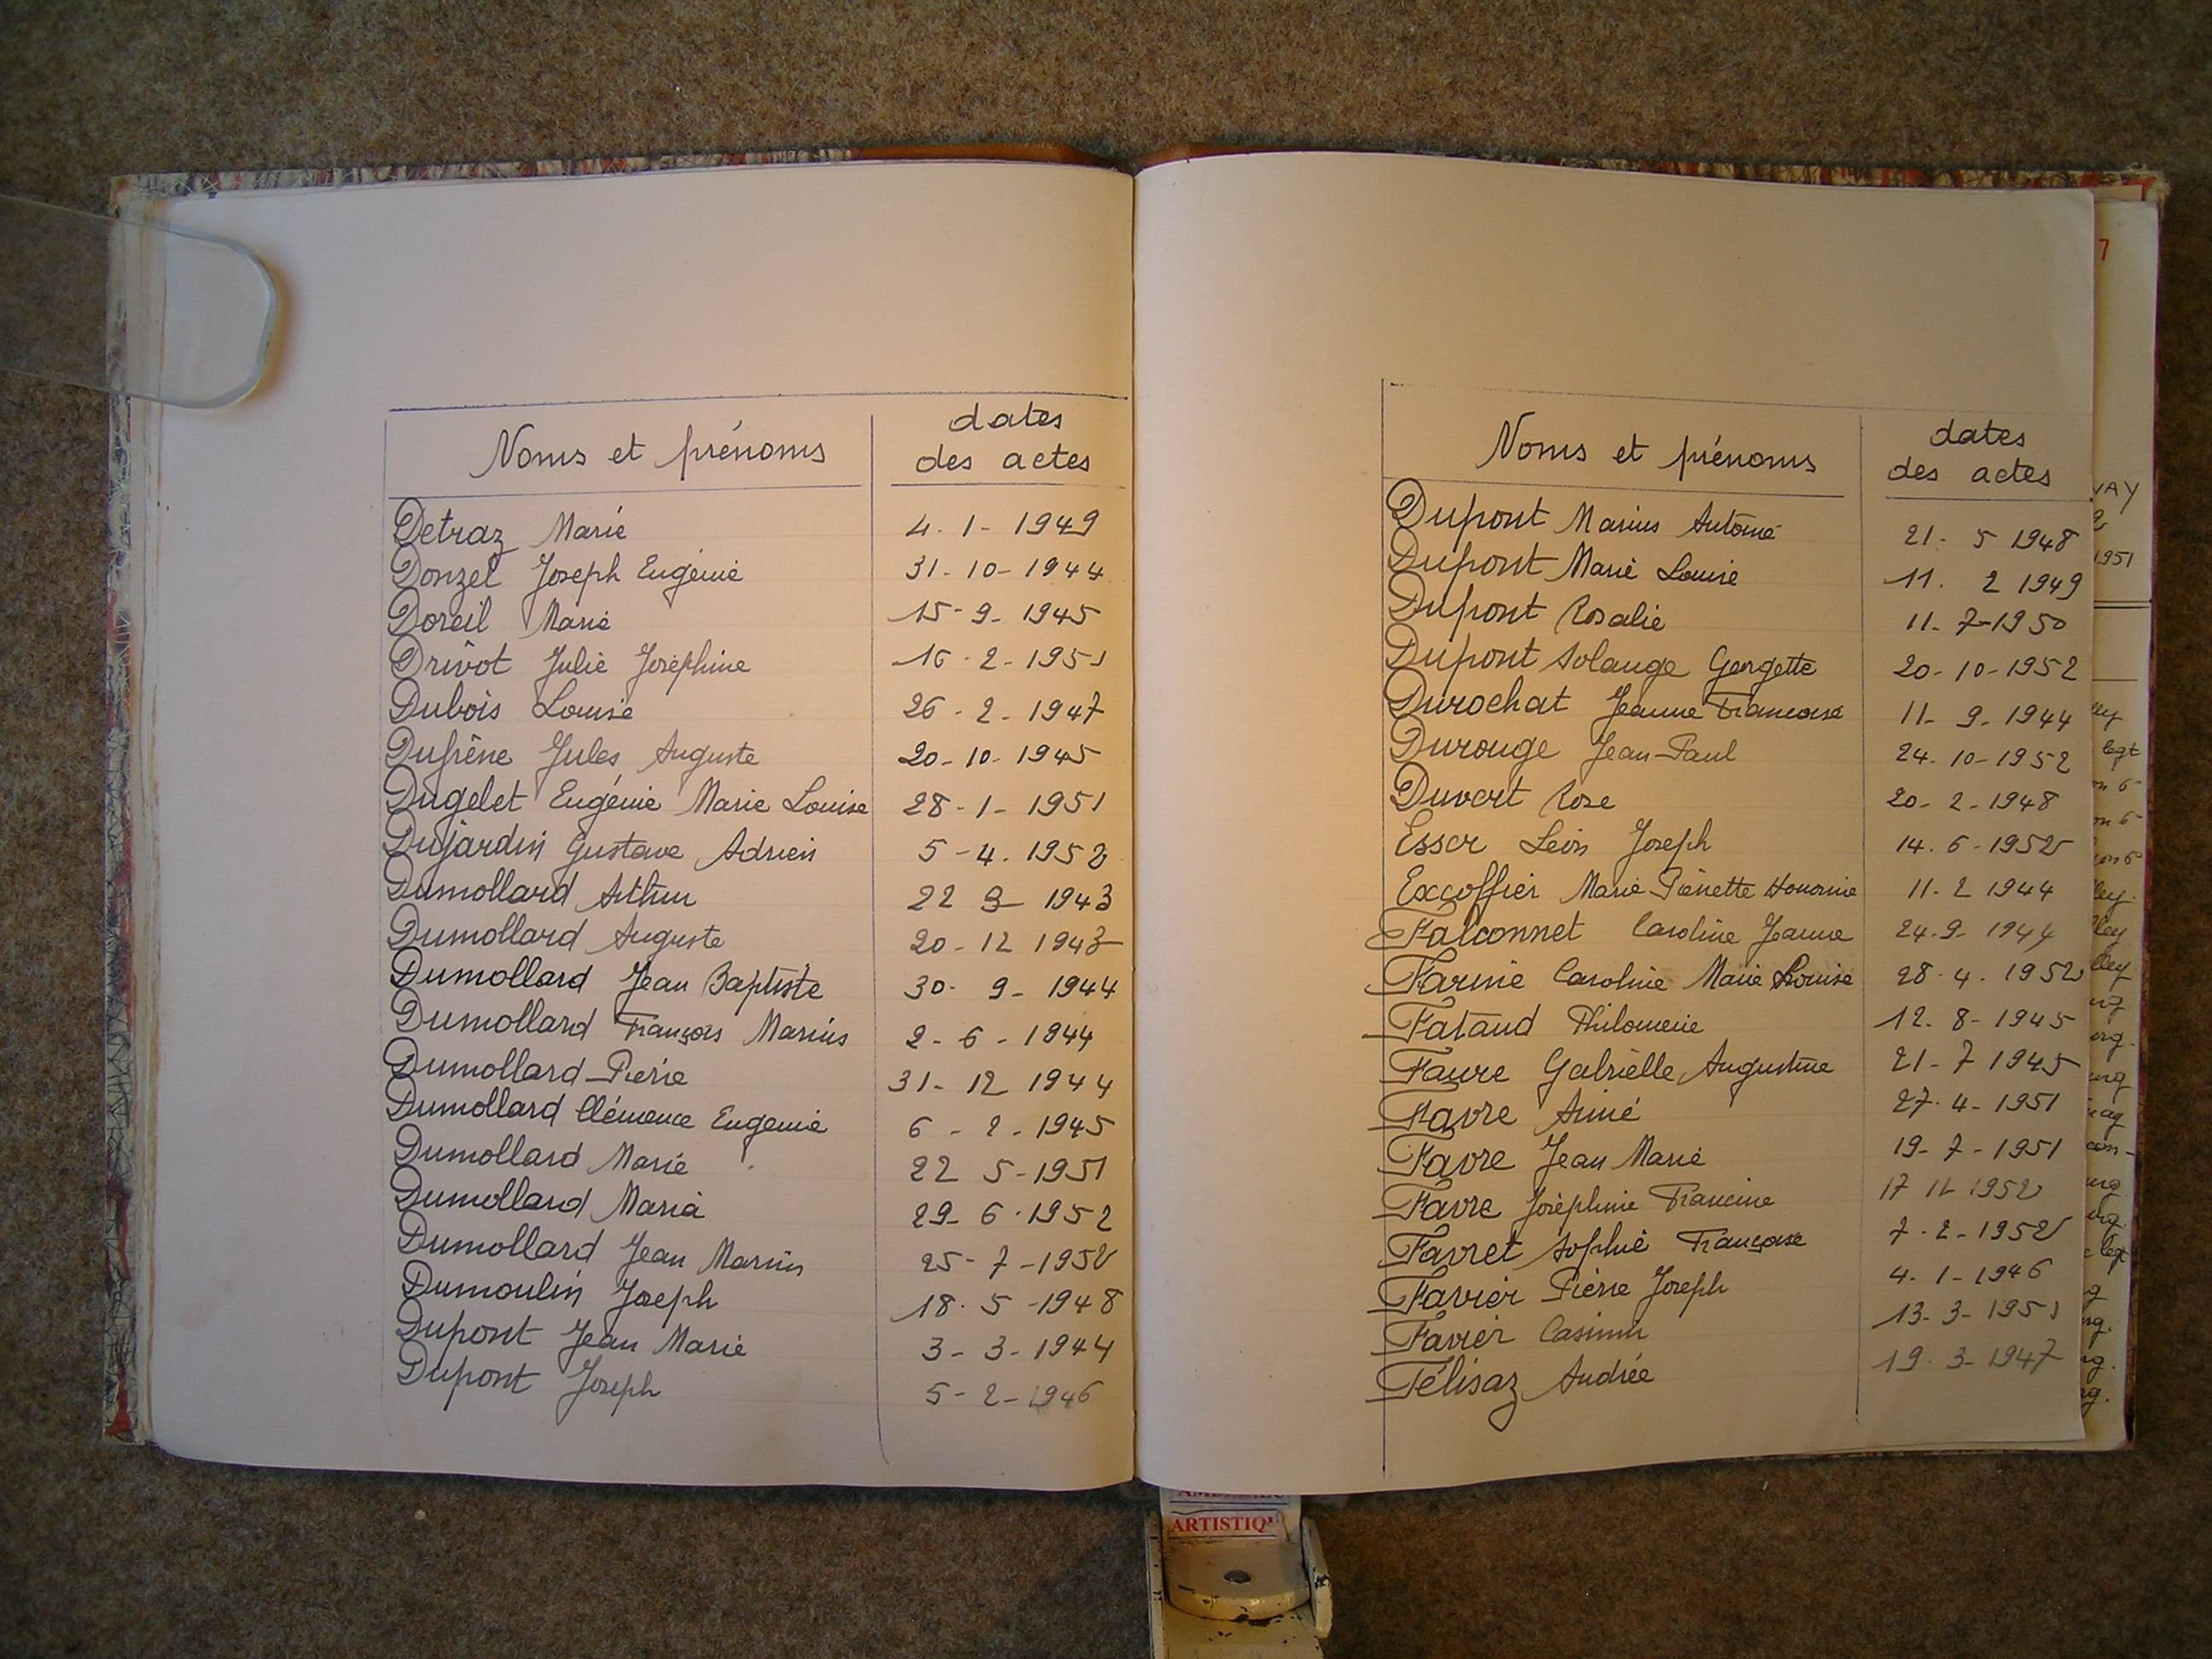 Noms et prénoms
dates
des actes
Detraz Marie 4. 1 - 1949
Donzel Joseph Eugénie 31 - 10 - 1944
Doreil Marie 15 - 9 - 1945
Drivot Julie Joséphine 16 - 2 - 1951
Dubois Louise 26 - 2 - 1947
Dufrêne Jules Auguste 20 - 10 - 1945
Dugelet Eugénie Marie Louise 28 - 1 - 1951
Dujardin Gustave Adrien 5 - 4 . 1952
Dumollard Arthur 22 3 - 1943
Dumollard Auguste 20 - 12 1943
Dumollard Jean Baptiste 30 - 9 - 1944
Dumollard François Marius 2 - 6 - 1944
Dumollard Pierre 31 - 12 1944
Dumollard Clémence Eugenie 6 - 2 - 1945
Dumollard Marie 22 5 - 1951
Dumollard Maria 29 - 6 . 1952
Dumollard Jean Marius 25 - 7 - 1952
Dumoulin Joseph 18 . 5 - 1948
Dupont Jean Marie 3 - 3 - 1944
Dupont Joseph 5 - 2 - 1946
Noms et prénoms
dates
des actes
Dupont Marius Antoine 21 - 5 1948
Dupont Marie Louise 11 . 2 1949
Dupont Rosalie 11 - 7 - 1950
Dupont Solange Georgette 20 - 10 - 1952
Durochat Jeanne Françoise 11 - 9 - 1944
Durouge Jean-Paul 24 - 10 - 1952
Duvert Rose 20 - 2 - 1948
Esser Léon Joseph 14 . 6 - 1952
Excoffier Marie Pierrette Honorine 11 - 2 1944
Falconnet Caroline Jeanne 24 . 9 - 1944
Farine Caroline Marie Louise 28 . 4 . 1952
Fataud Philomène 12 . 8 - 1945
Faure Gabrielle Augustine 21 - 7 1945
Favre Aimé 27 . 4 - 1951
Favre Jean Marie 19 - 7 - 1951
Favre Joséphine Francine 17 11 1952
Favret Sophie Françoise 7 - 2 - 1952
Favier Pierre Joseph 4 - 1 - 1946
Favier Casimir 13 - 3 - 1951
Félisaz Andrée 19 . 3 - 1947
7
1951
ARTISTIQ